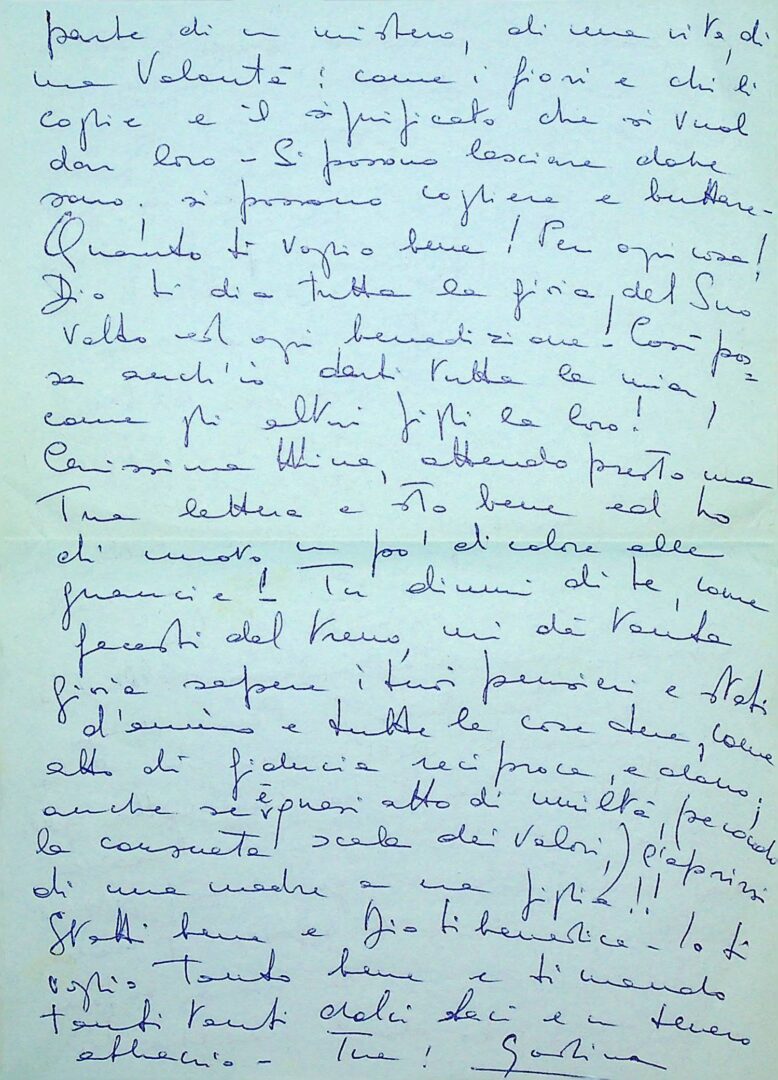 parte di un mistero, di una vita, di
una Volontà: come i fiori e chi li
coglie e il significato che si vuol
dar loro - Si possono lasciare dove
sono. si possono cogliere e buttare -
Quanto ti voglio bene! Per ogni cosa!
Dio ti dia tutta la gioia, del Suo
Volto ed ogni benedizione! Così pos=
sa anch'io darti tutta la mia,
come gli altri figli la loro!
Carissima, attendo presto una
Tua lettera e sto bene ed ho
di nuovo, un po' di colore alle
guancie! Tu dimmi di te, come
facesti del treno, mi dà tanta
gioia sapere i tuoi pensieri e stati
d'animo e tutte le cose tue, come
atto di fiducia reciproca, e dono;
anche se è quasi atto di umiltà, (secondo
la consueta scala dei valori,) l'aprirsi
di una madre a una figlia!!
Statti bene e Dio ti benedica - Io ti
voglio tanto bene e ti mando
tanti tanti dolci baci e un tenero
abbraccio - Tua!